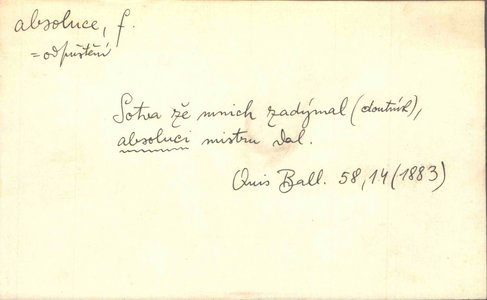 absoluce, f.
= odpuštění
Sotva že mnich zadýmal (doutník),
absoluci mistru dal.
Quis Ball. 58, 14 (1883)